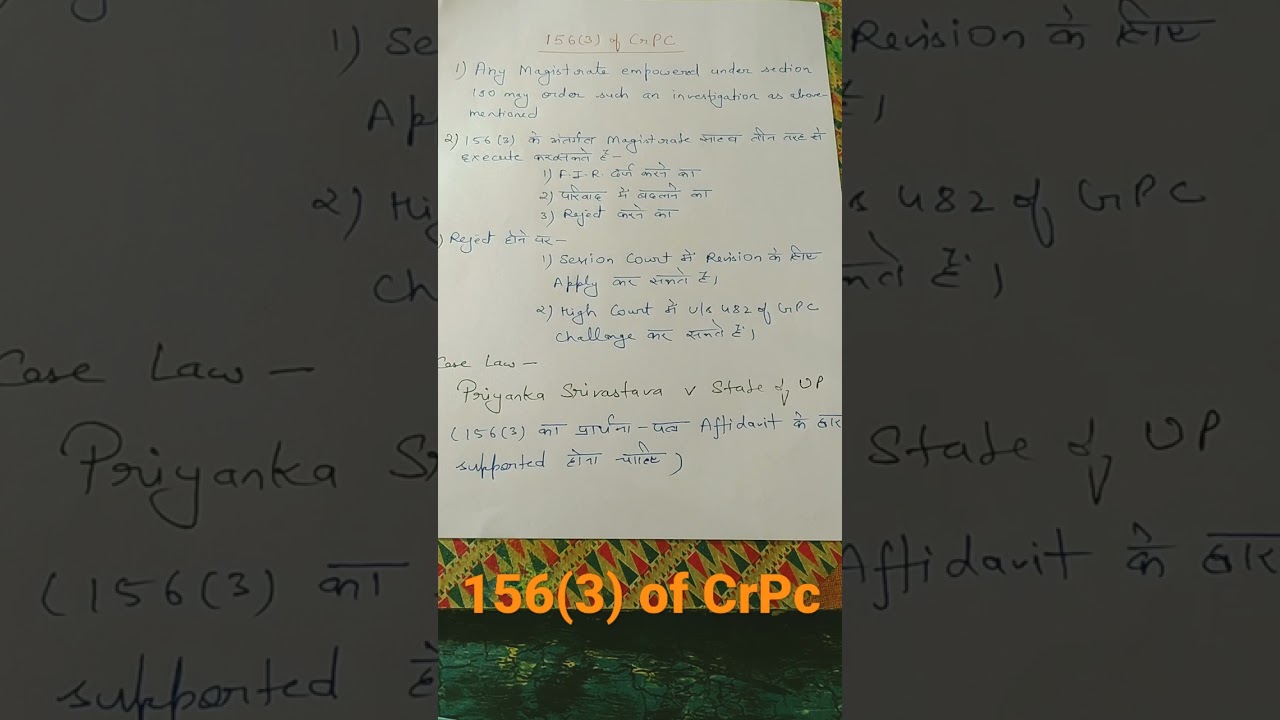 156(3) of CrPC
1) Any Magistrate empowered under section
190 may order such an investigation as above-
mentioned
2) 156(3) के अंतर्गत Magistrate साहब तीन तरह से
Execute कर सकते हैं -
1) F.I.R. दर्ज करने का
2) परिवाद में बदलने का
3) Reject करने का
) Reject होने पर -
1) Session Court में Revision के लिए
Apply कर सकते हैं।
2) High Court में U/s 482 of CrPC
Challenge कर सकते हैं।
Case Law -
Priyanka Srivastava v State of UP
(156(3) का प्रार्थना-पत्र Affidavit के द्वार
supported होना चाहिए)
156(3) of CrPc